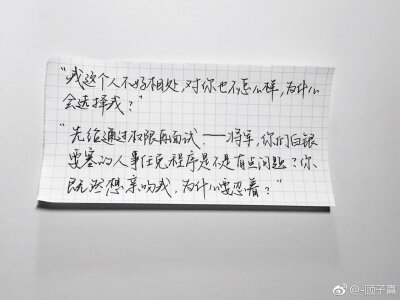 “我这个人不好相处,对你也不怎么样,为什么
会选择我?”
“先给通过权限再面试.——将军,你们白银
要塞的人事任免程序是不是有点问题?你
既然想亲吻我,为什么要忍着?”
@-顾子熹